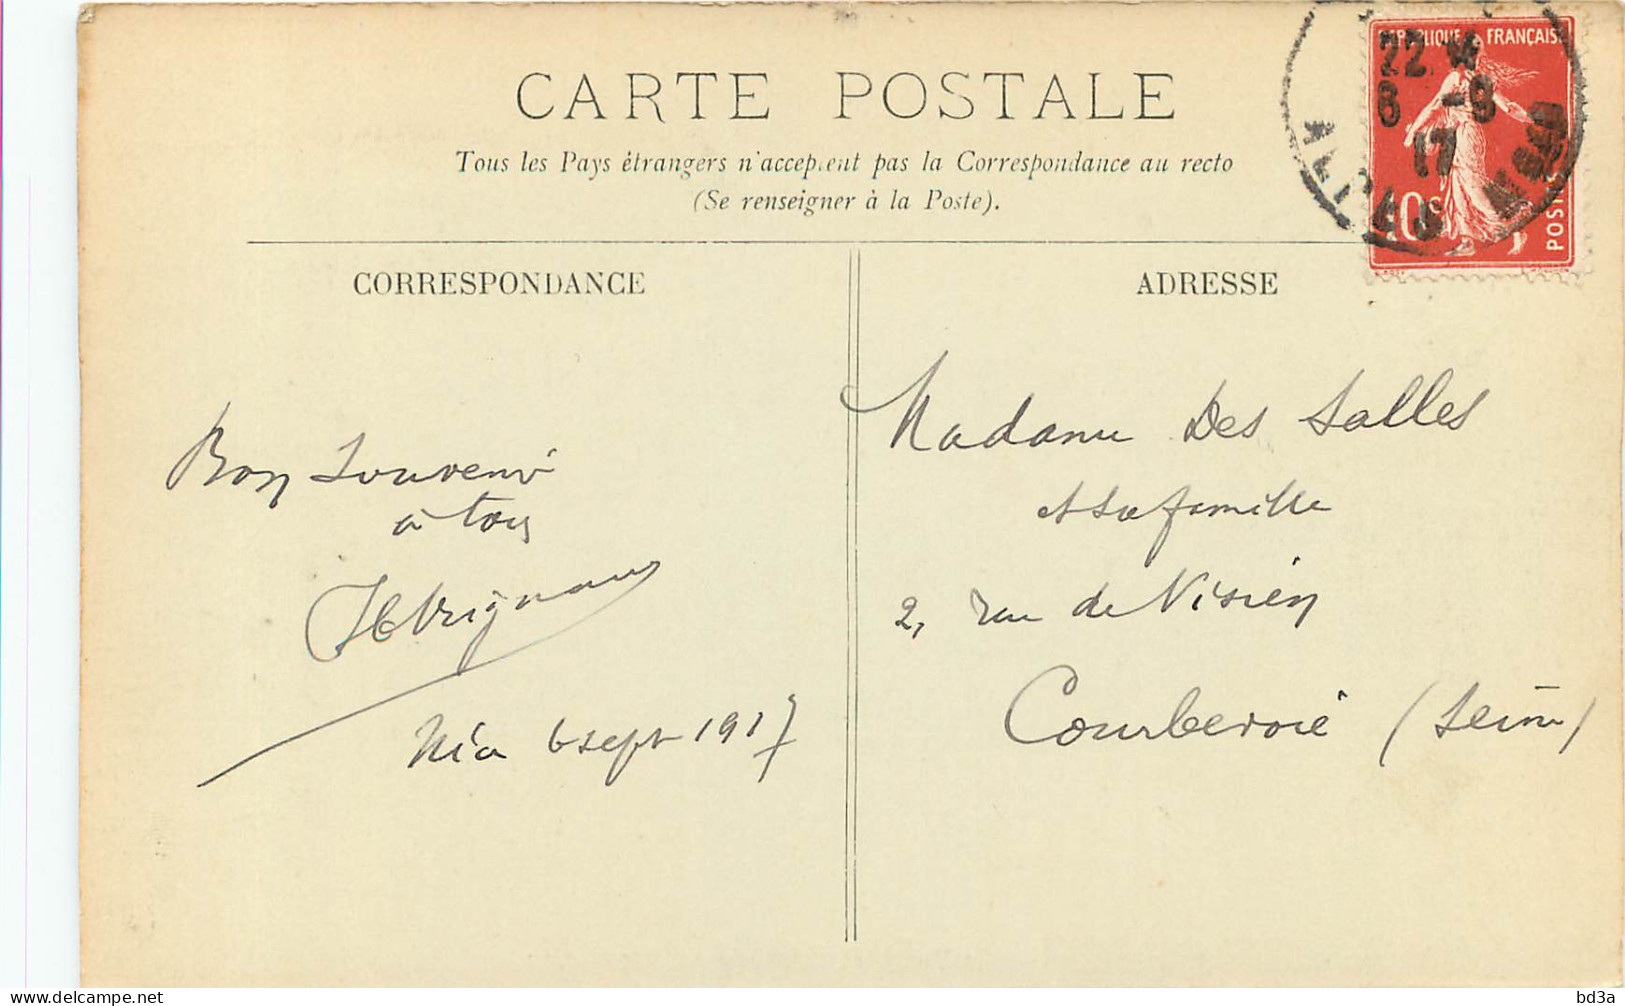 CARTE POSTALE
Tous les Pays étrangers n'acceptent pas la Correspondance au recto
(Se renseigner à la Poste).
RÉPUBLIQUE FRANÇAISE
22
8 -9
17
10c
POSTES
CORRESPONDANCE
ADRESSE
Bon Souvenir
à tous
6 sept 1917
Madame Des Salles
et sa famille
2, rue de
Courbevoie (Seine)
delcampe.net
bd3a